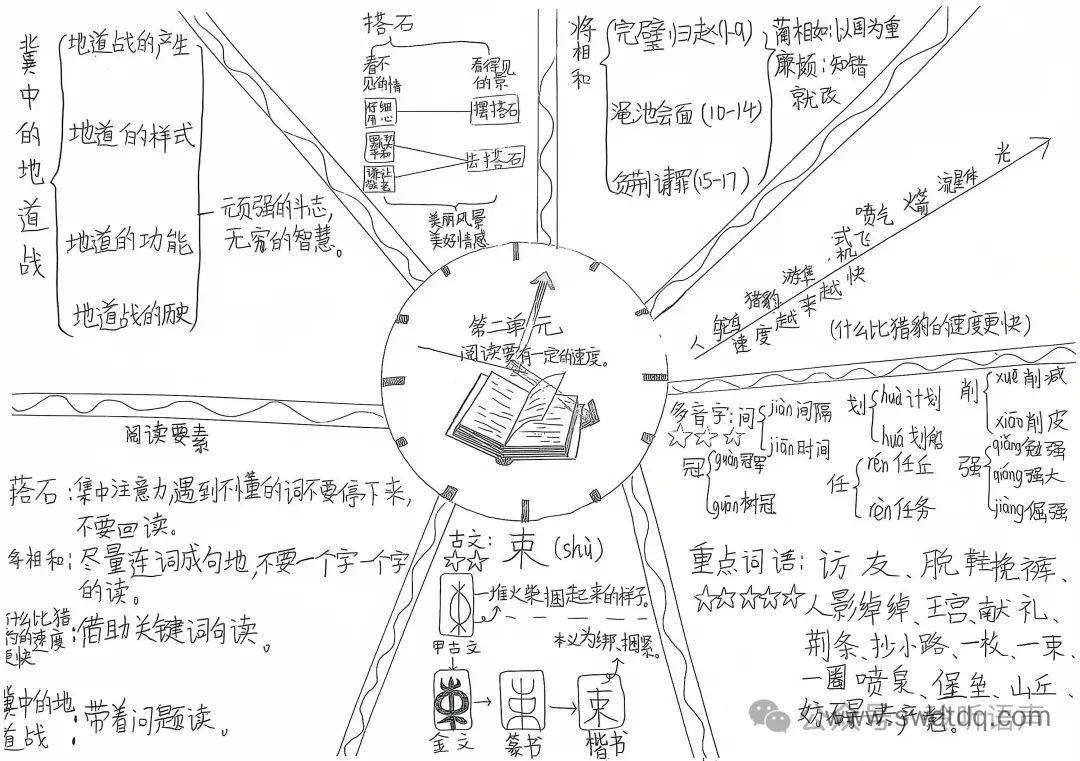 冀中的地道战
地道战的产生
地道的样式
地道的功能
地道战的历史
顽强的斗志,
无穷的智慧。
搭石
看不
见的情
看得见
的景
仔细
用心
摆搭石
走搭石
谦让
敬老
美丽风景
美好情感
将相和
完璧归赵(1-9)
渑池会面(10-14)
负荆请罪(15-17)
蔺相如:以国为重
廉颇:知错
就改
人 鸵鸟 猎豹 游隼 喷气式飞机 火箭 流星体 光
速度越来越快
(什么比猎豹的速度更快)
第二单元
阅读要有一定的速度。
阅读要素
搭石:集中注意力,遇到不懂的词不要停下来,
不要回读。
将相和:尽量连词成句地,不要一个字一个字
的读。
什么比猎
豹的速度
更快:借助关键词句读。
冀中的地
道战:带着问题读。
古文:束(shù)
☆☆
一堆火柴捆起来的样子。
本义为绑、捆紧。
甲古文
金文
篆书
束
楷书
多音字:
☆☆☆
间 jiàn间隔
jiān时间
划 huà计划
huá划船
削 xuē削减
xiāo削皮
冠 guàn冠军
guān树冠
任 rén任丘
rèn任务
强 qiǎng勉强
qiáng强大
jiàng倔强
重点词语:访友、脱鞋挽裤、
☆☆☆☆☆
人影绰绰、王宫、献礼、
荆条、抄小路、一枚、一束、
一圈喷泉、堡垒、山丘、
妨碍
公众号
www.swctdq.com